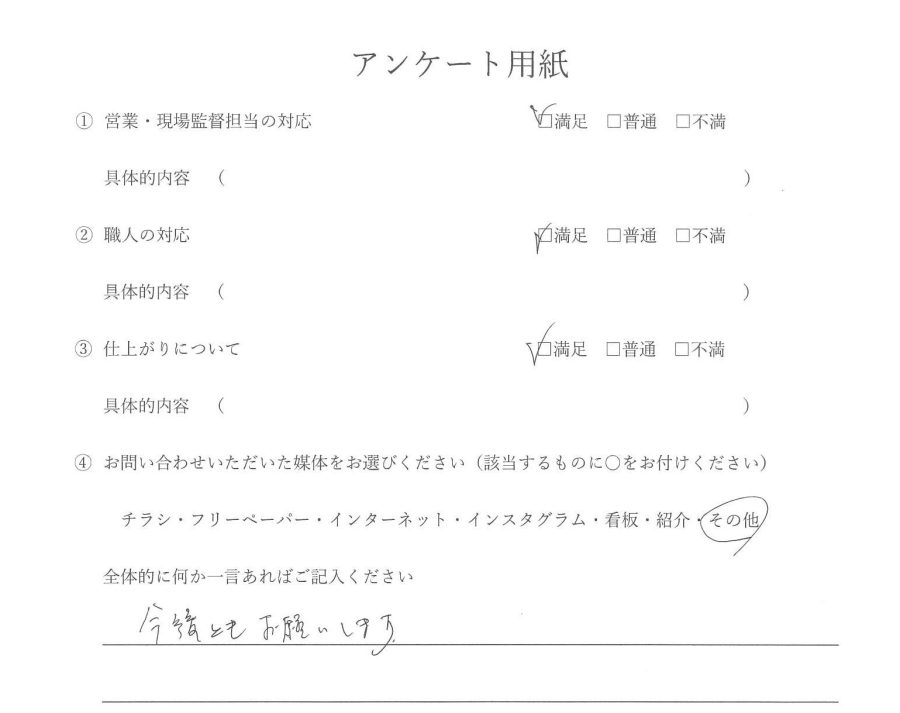 アンケート用紙
① 営業・現場監督担当の対応 ☑満足 □普通 □不満
具体的内容 （ ）
② 職人の対応 ☑満足 □普通 □不満
具体的内容 （ ）
③ 仕上がりについて ☑満足 □普通 □不満
具体的内容 （ ）
④ お問い合わせいただいた媒体をお選びください（該当するものに○をお付けください）
チラシ・フリーペーパー・インターネット・インスタグラム・看板・紹介・その他
全体的に何か一言あればご記入ください
今後ともお願いします